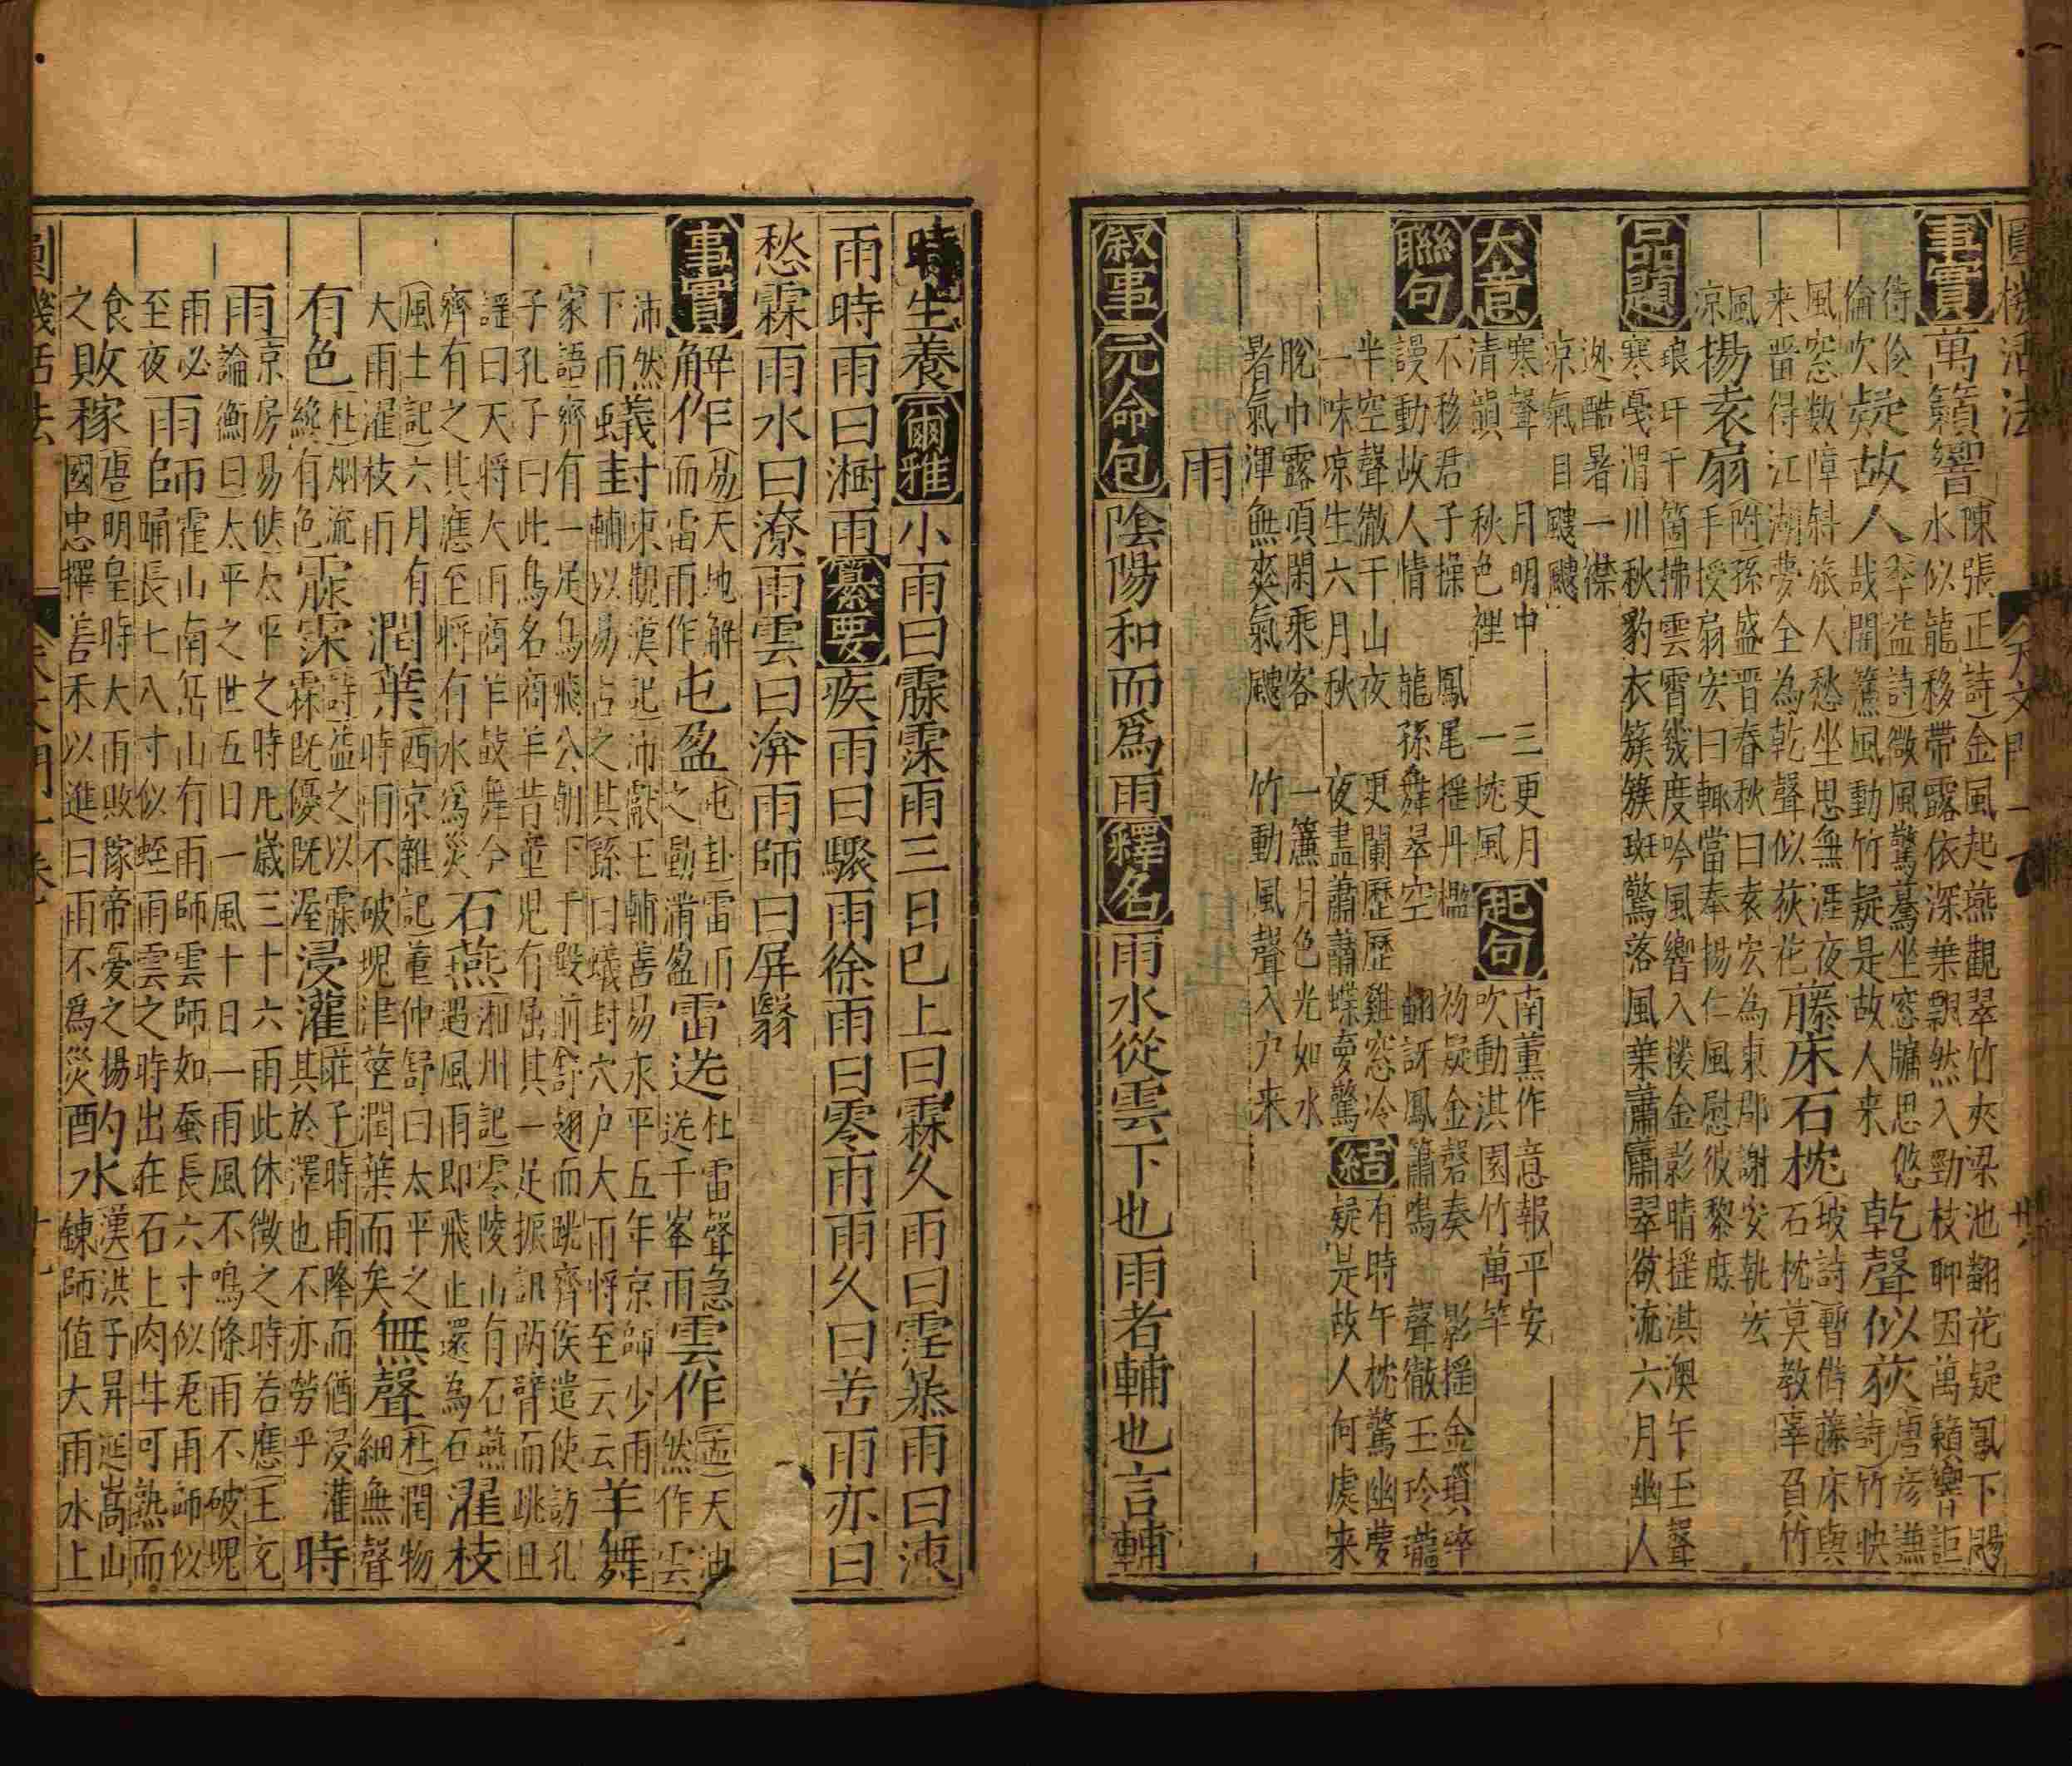 圓機活法 天文門一 卷一 廿八
事實 萬籟響
(陳張正詩)金風起燕觀翠竹夾梁池翻花疑鳳下颺
水似龍移帶露依深葉飄然入勁枝聊因萬籟響詎
待伶
倫吹
疑故人
(李益詩)微風驚暮坐窓牖思悠
哉開簾風動竹疑是故人来
乾聲似荻
唐彦謙
詩)竹映
風窓数障斜旅人愁坐思無涯夜
来畱得江湖夢全為乾聲似荻花
藤床石枕
坡詩暫借藤床與
石枕莫教辜負竹
風
凉
揚袁扇
(附)孫盛晋春秋曰袁宏為東郡謝安執宏
手授扇宏曰輙當奉揚仁風慰彼黎庶
品題
琅玕千箇拂雲霄幾度吟風響入楼金影晴揺淇澳午玉聲
寒戞渭川秋豹衣簇簇斑驚落風葉蕭蕭翠欲流六月幽人
迯酷暑一襟
凉氣自颼颼
大意
寒聲 月明中 三更月
清韻 秋色裡 一挽風
起句
南薫作意報平安
吹動淇園竹萬竿
聯句
不移君子操 鳳尾揺丹檻 初疑金磬奏 影揺金瑣碎
謾動故人情 龍孫舞翠空 翻訝鳳簫鳴 聲徹玉玲瓏
半空聲徹千山夜 更闌歴歴雞窓冷
一味凉生六月秋 夜盡蕭蕭蝶夢驚
結
有時午枕驚幽夢
疑是故人何處来
脫巾露頂閑乘客 一簾月色光如水
暑氣渾無爽氣颼 竹動風聲入户来
雨
叙事 元命包 陰陽和而爲雨 釋名 雨水從雲下也雨者輔也言輔
時生養 爾雅 小雨曰霡霂雨三日已上曰霖久雨曰霪暴雨曰涷
雨時雨曰澍雨 纂要 疾雨曰驟雨徐雨曰零雨雨久曰苦雨亦曰
愁霖雨水曰潦雨雲曰渰雨師曰屏翳
事實 解作
(易)天地解
而雷雨作
屯盈
(屯卦)雷雨
之動滿盈
雷送
杜雷聲急
送千峯雨
雲作
(孟)天油
然作雲
沛然
下雨
蟻封
東觀漢記)沛獻王輔善易永平五年京師少雨
輔以易占之其繇曰蟻封穴户大雨将至云云
羊舞
家語)齊有一足鳥飛公朝下于殿前舒翅而跳齊侯遣使訪孔
子孔子曰此鳥名商羊昔童兒有屈其一足振訊兩臂而跳且
謡曰天将大雨商羊鼓舞今
齊有之其應至将有水為災
石燕
湘州記)零陵山有石燕
遇風雨即飛止還為石
濯枝
(風土記)六月有
大雨濯枝雨
潤葉
西京雜記董仲舒曰太平之
時雨不破塊津莖潤葉而矣
無聲
(杜)潤物
細無聲
有色
(杜)烟流
纔有色
霡霂
(詩)益之以霡
霂既優既渥
浸灌
莊子)時雨降而猶浸灌
其於澤也不亦勞乎
時
雨
京房易候)太平之時凡歲三十六雨此休徵之時若應(王充
論衡曰)太平之世五日一風十日一雨風不鳴條雨不破塊
雨必
至夜
雨師
霍山南岳山有雨師雲師如蚕長六寸似兎雨師似
蛹長七八寸似蛭雨雲之時出在石上肉甘可熟而
食
之
敗稼
(唐)明皇時大雨敗稼帝憂之楊
國忠擇善禾以進曰雨不爲災
酌水
漢洪子昇遊嵩山
錬師值大雨水上
圓機活法 天文門一 卷一